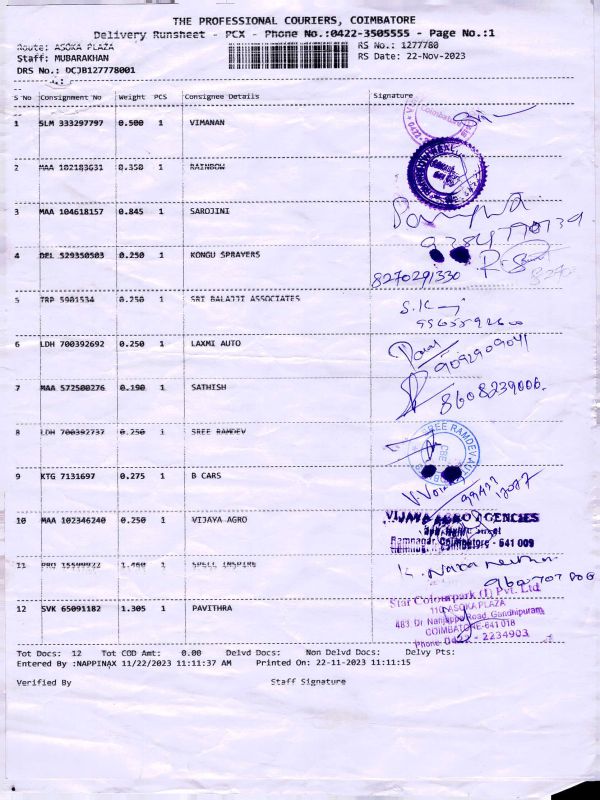 THE PROFESSIONAL COURIERS, COIMBATORE
Delivery Runsheet - PCX - Phone No.:0422-3505555 - Page No.:1
Route: ASOKA PLAZA RS No.: 1277780
Staff: MUBARAKHAN RS Date: 22-Nov-2023
DRS No.: DCJB127778001
S No Consignment No Weight PCS Consignee Details Signature
1 SLM 333297797 0.500 1 VIMANAN
2 MAA 102183631 0.350 1 RAINBOW
3 MAA 104618157 0.845 1 SAROJINI
4 DEL 529350503 0.250 1 KONGU SPRAYERS
8270291330
5 TRP 5901534 0.250 1 SRI BALAJJI ASSOCIATES
S.K
6 LDH 700392692 0.250 1 LAXMI AUTO
9092909041
7 MAA 572500276 0.190 1 SATHISH
8608239006.
8 LDH 700392737 0.250 1 SREE RAMDEV
SREE RAMDEV AUTO
CBE
9 KTG 7131697 0.275 1 B CARS
10 MAA 102346240 0.250 1 VIJAYA AGRO
VIJAYA AGRO AGENCIES
Ramnagar, Coimbatore - 641 009
11 PRO 1.460 1 SPELL INSPIRE
12 SVK 65091182 1.305 1 PAVITHRA
Star Colourpark (I) Pvt. Ltd
110 ASOKA PLAZA
483 Dr Nanjappa Road, Gandhipuram
COIMBATORE-641018
Phone 0422 - 2234903
Tot Docs: 12 Tot COD Amt: 0.00 Delvd Docs: Non Delvd Docs: Delvy Pts:
Entered By :NAPPINAX 11/22/2023 11:11:37 AM Printed On: 22-11-2023 11:11:15
Verified By Staff Signature